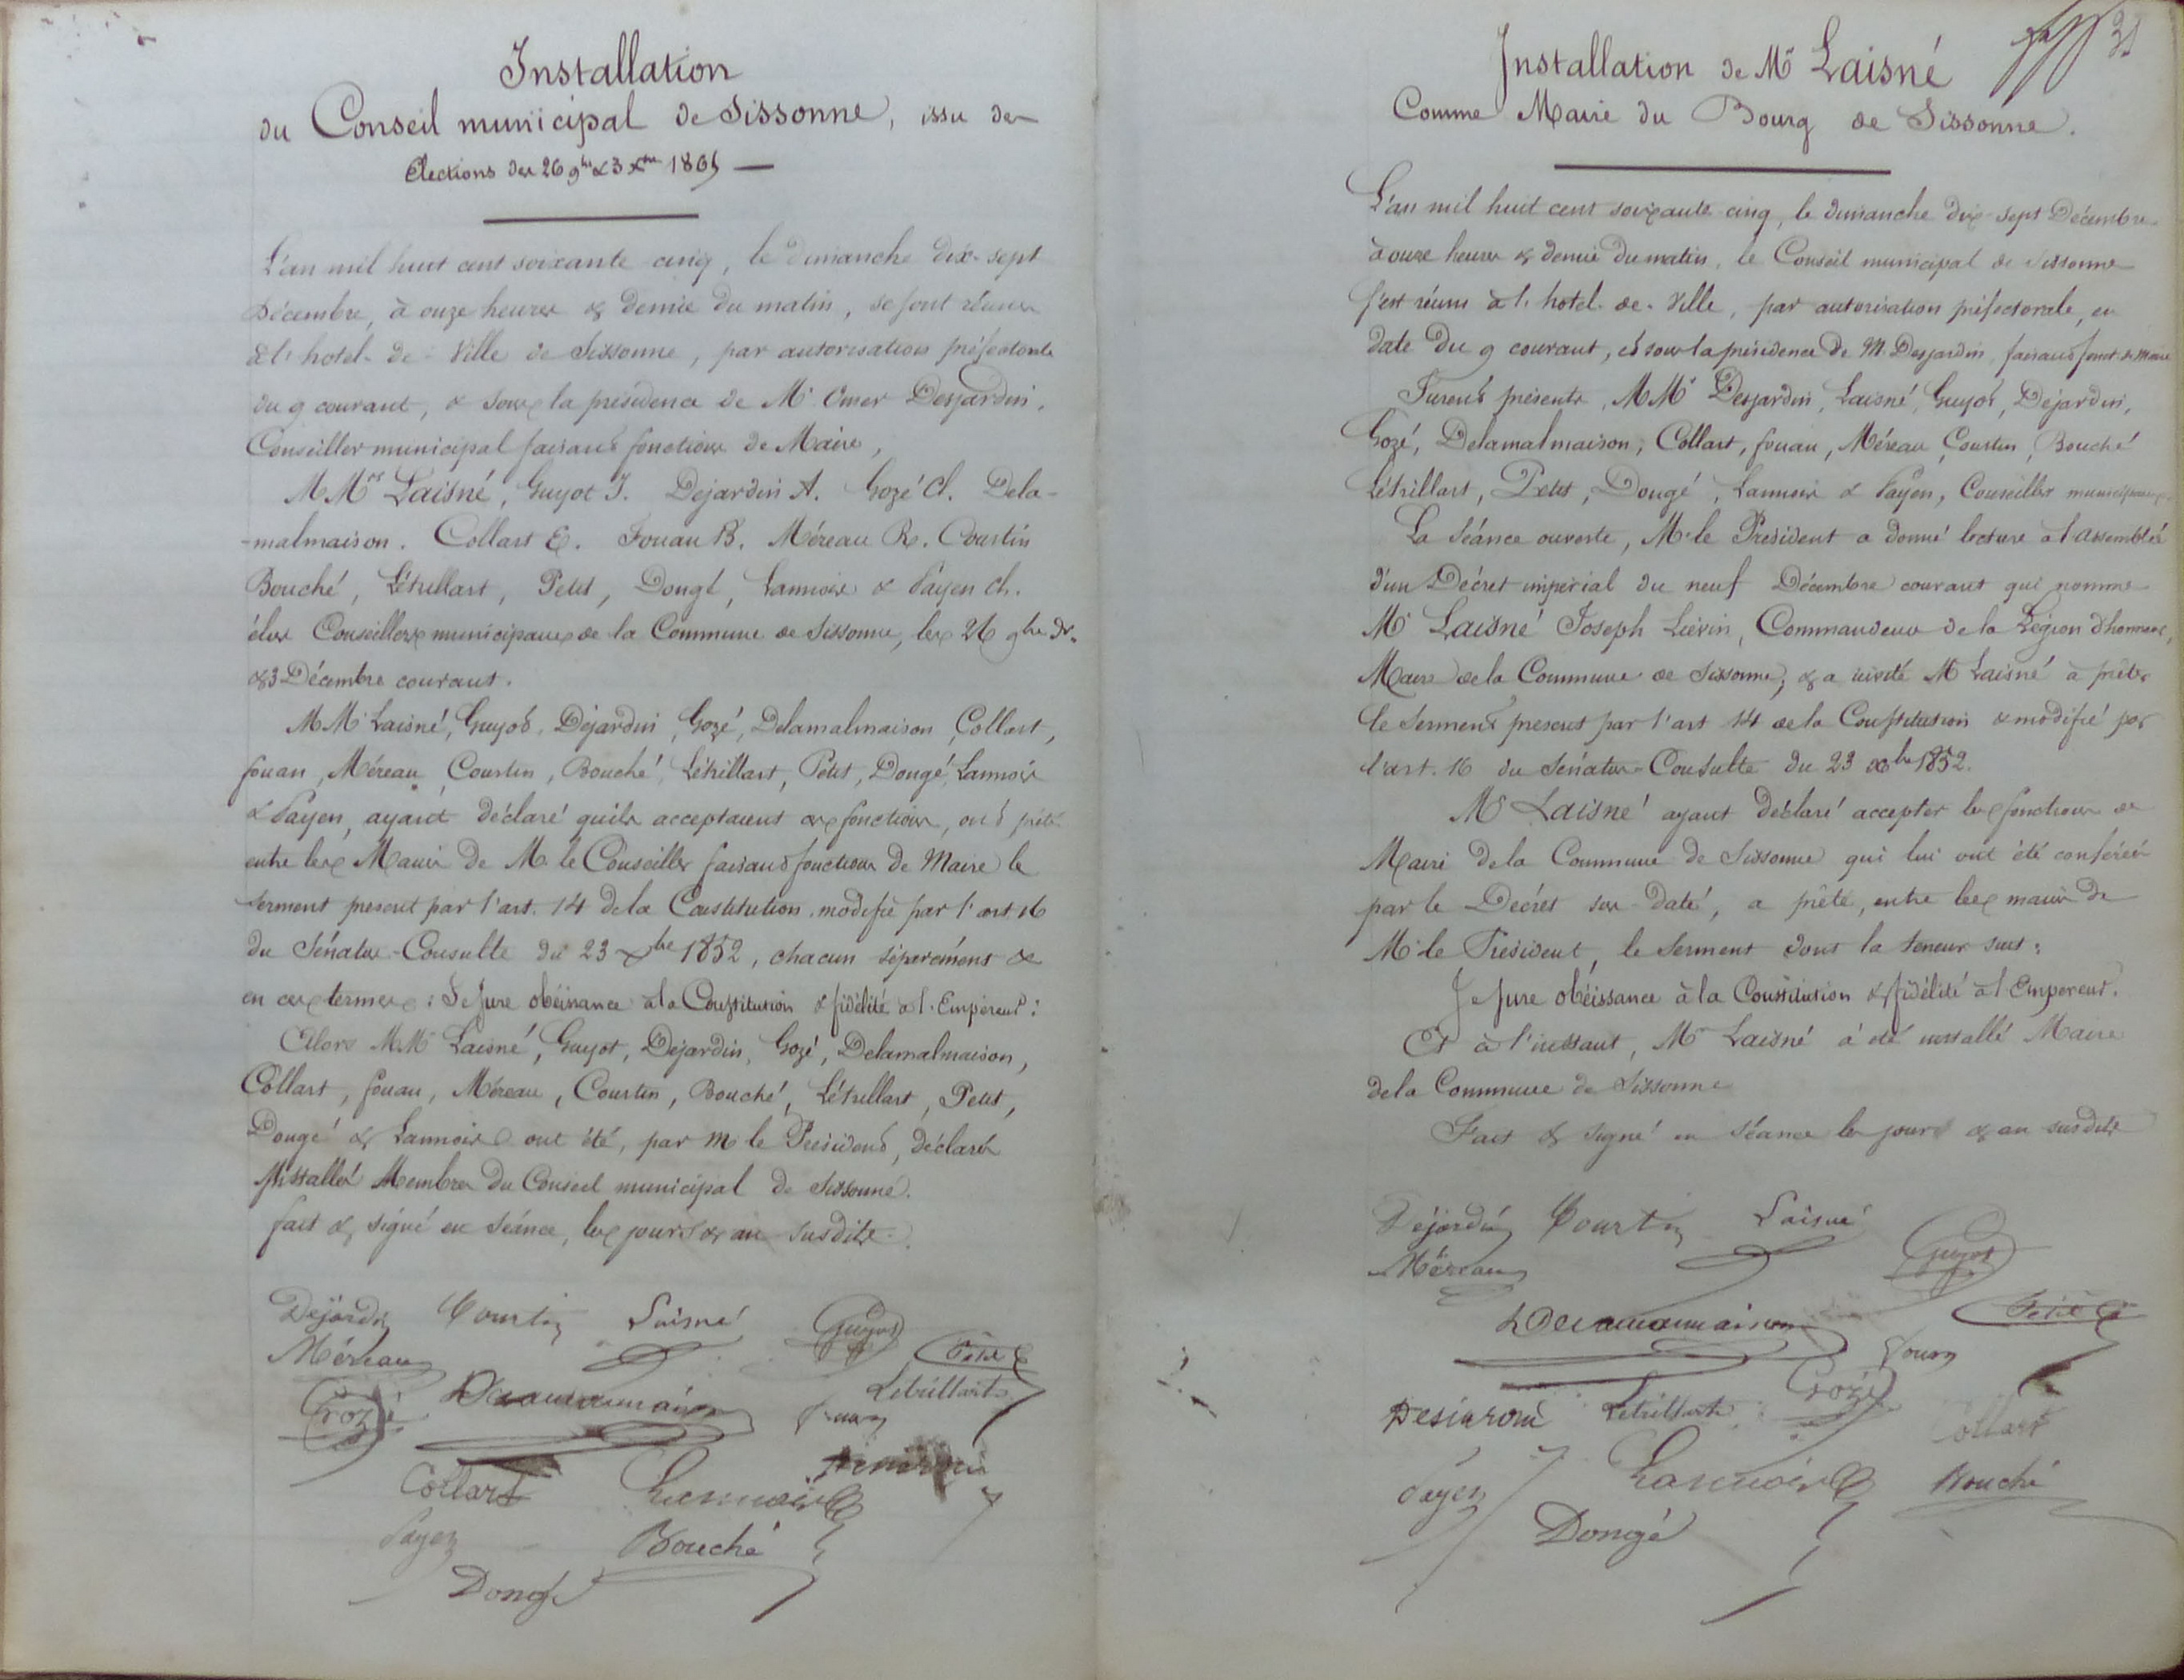 Installation
du Conseil municipal de Sissonne, issu des
Elections des 26 9bre & 3 Xbre 1865 —
L'an mil huit cent soixante cinq, le dimanche dix-sept
Décembre, à onze heures & demie du matin, se sont réunis
à l'hotel-de-Ville de Sissonne, par autorisation préfectorale
du 9 courant, & sous la présidence de Mr Omer Desjardin,
Conseiller municipal faisant fonctions de Maire,
MMrs Laisné, Guyot J. Dejardin A. Gozé Ch. Dela-
-malmaison. Collart E. Fouan B. Méreau R. Courtin
Bouché, Létrillart, Petit, Dougé, Lannois & Payen Ch.
élus Conseillers municipaux de la Commune de Sissonne, les 26 9bre Dr.
& 3 Décembre courant.
MMrs Laisné, Guyot, Dejardin, Gozé, Delamalmaison, Collart,
fouan, Méreau, Courtin, Bouché, Létrillart, Petit, Dougé, Lannois
& Payen, ayant déclaré qu'ils acceptaient ces fonctions, ont prêté
entre les Mains de M. le Conseiller faisant fonctions de Maire le
serment prescrit par l'art. 14 de la Constitution, modifié par l'art 16
du Sénatus-Consulte du 23 Xbre 1852, chacun séparément &
en ces termes: Je jure obéissance à la Constitution & fidélité à l'Empereur:
Alors MMrs Laisné, Guyot, Dejardin, Gozé, Delamalmaison,
Collart, fouan, Méreau, Courtin, Bouché, Létrillart, Petit,
Dougé & Lannois ont été, par Mr le Président, déclarés
Installés Membres du Conseil municipal de Sissonne.
fait & signé en séance, les jour & an susdits.
Déjardin Courtin Laisné Guyot
Méreau Petit
Gozé Delamalmaison fouan Letrillart
Collart Lannois
Payen Bouché
Dougé
31
Installation de Mr Laisné
Comme Maire du Bourg de Sissonne.
L'an mil huit cent soixante cinq, le dimanche dix-sept Décembre
à onze heures & demie du matin, le Conseil municipal de Sissonne
s'est réuni à l'hotel-de-Ville, par autorisation préfectorale, en
date du 9 courant, et sous la présidence de M. Desjardin faisant fonct. de Maire
Furent présents, MMrs Desjardin, Laisné, Guyot, Dejardin,
Gozé, Delamalmaison, Collart, fouan, Méreau, Courtin, Bouché
Létrillart, Petit, Dougé, Lannois & Payen, Conseillers municipaux.
La Séance ouverte, Mr le Président a donné lecture à l'assemblée
d'un Décret impérial du neuf Décembre courant qui nomme
Mr Laisné Joseph Liévin, Commandeur de la Légion d'honneur,
Maire de la Commune de Sissonne, & a invité M Laisné à prêter
le Serment prescrit par l'art 14 de la Constitution & modifié par
l'art. 16 du Sénatus-Consulte du 23 Xbre 1852.
Mr Laisné ayant déclaré accepter les fonctions de
Maire de la Commune de Sissonne qui lui ont été conférées
par le Décret sus-daté, a prêté, entre les mains de
Mr le Président, le Serment dont la teneur suit:
Je Jure obéissance à la Constitution & fidélité à l'Empereur.
Et à l'instant, Mr Laisné a été installé Maire
de la Commune de Sissonne
Fait & signé en Séance les jour & an susdits
Déjardin Courtin Laisné Guyot
Méreau
Delamalmaison Petit
fouan
Desjardin Letrillart Gozé Collart
Payen Lannois Bouché
Dougé